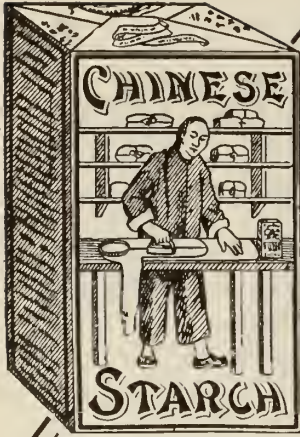 CHINESE
STARCH